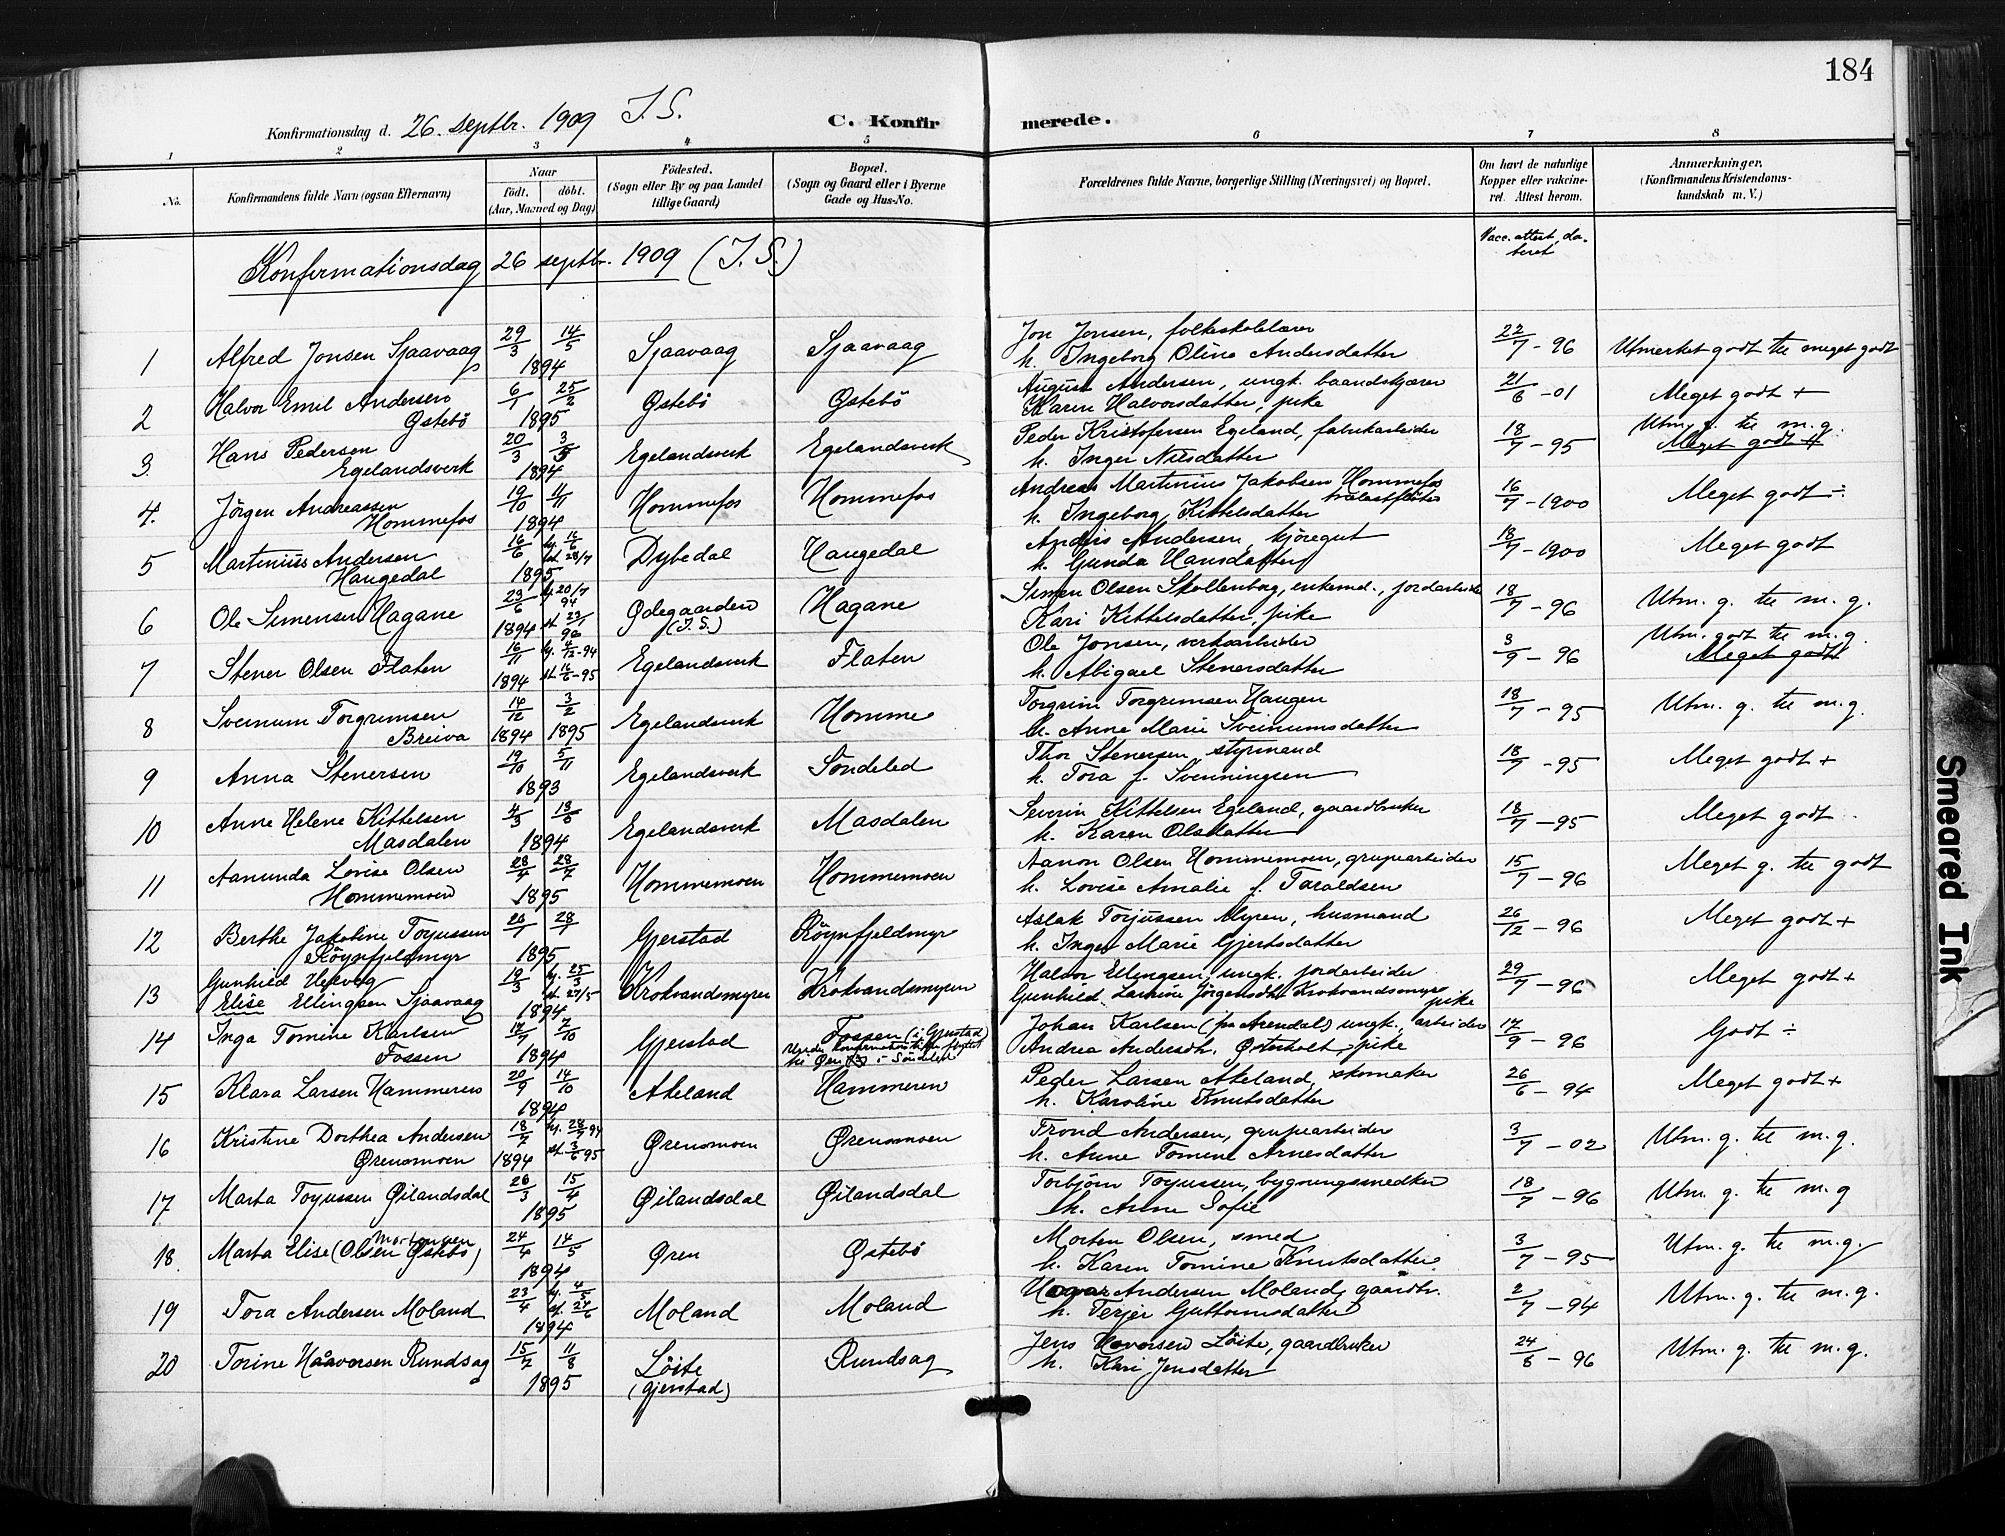 184
Konfirmationsdag d. 26. septbr. 1909 I. S. C. Konfirmerede.
1 2 3 4 5 6 7 8
No. Konfirmandens fulde Navn (ogsaa Efternavn)
Naar
födt. döbt.
(Aar, Maaned og Dag)
Födested.
(Sogn eller By og paa Landet
tillige Gaard)
Bopæl.
(Sogn og Gaard eller i Byerne
Gade og Hus-No.
Forældrenes fulde Navne, borgerlige Stilling (Næringsvei) og Bopæl.
Om havt de naturlige
Kopper eller vakcine-
ret. Attest herom.
Anmærkninger.
(Konfirmandens Kristendoms-
kundskab m. V.)
Vacc. attest da-
teret
Konfirmationsdag 26 septbr. 1909 (I. S.)
1 Alfred Jonsen Sjaavaag 29/3 14/5 1894 Sjaavaag Sjaavaag
Jon Jonsen, folkeskolelærer
h. Ingeborg Oline Andersdatter 22/7 - 96 Utmerket godt til meget godt
2 Halvor Emil Andersen
Østebö 6/1 25/2 1895 Østebö Østebö
August Andersen, ungk. baandskjærer
Karen Halvorsdatter, pike 21/6 - 01 Meget godt +
3. Hans Pedersen
Egelandsverk 20/3 3/5 1894 Egelandsverk Egelandsverk
Peder Kristofersen Egeland, fabrikarbeider
h. Inger Nilsdatter 18/7 - 95 Utm. g. til m. g.
Meget godt +
4. Jörgen Andreassen
Hommefos 19/10 11/11 1894 Hommefos Hommefos
Andreas Martinius Jakobsen Hommefos
h. Ingeborg Kittelsdatter 16/7 - 1900 Meget godt ÷
5 Martinius Andersen
Haugedal 16/6 hj. 16/6 st. 28/7 1895 Dybedal Haugedal
Anders Andersen, kjöregut
h. Gunda Hansdatter 18/7 - 1900 Meget godt
6 Ole Simensen Hagane 23/6 1894 hj. 20/7 94 st. 23/1 96 Ødegaarden
(I. S.) Hagane
Simen Olsen Skollenborg, enkemd., jordarbeider
Kari Kittelsdatter, pike 18/7 - 96 Utm. g. til m. g.
7 Stener Olsen Flaten 16/11 1894 hj. 4/12 - 94 st. 16/6 - 95 Egelandsverk Flaten
Ole Jonsen, verksarbeider
h. Abigael Stenersdatter 3/9 - 96 Utm. godt til m. g.
Meget godt
8 Sveinum Torgrimsen
Breiva 14/12 1894 3/2 1895 Egelandsverk Homme
Torgrim Torgrimsen Haugen
h. Anne Marie Sveinumsdatter 18/7 - 95 Utm. g. til m. g.
9 Anna Stenersen 19/10 5/11 1893 Egelandsverk Söndeled
Thor Stenersen, styrmand
h. Tora f. Svenningsen 18/7 - 95 Meget godt +
10 Anne Helene Kittelsen
Masdalen 4/3 13/5 1894 Egelandsverk Masdalen
Severin Kittelsen Egeland, gaardbruker
h. Karen Olsdatter 18/7 - 95 Meget godt
11 Aanunda Lovise Olsen
Hommemoen 28/4 28/7 1895 Hommemoen Hommemoen
Aanon Olsen Hommemoen, grupearbeider
h. Lovise Amalie f. Taraldsen 15/7 - 96 Meget g. til godt
12 Berthe Jakobine Torjussen
Röynfjeldmyr 26/7 28/7 1895 Gjerstad Röynfjeldmyr
Aslak Torjussen Myren, husmand
h. Inger Marie Gjertsdatter 26/12 - 96 Meget godt +
13 Gunhild Hedvig
Elise Ellingsen Sjaavaag 19/3 hj. 25/3 st. 27/5 1894 Krokvandsmyren Krokvandsmyren
Halvor Ellingsen, ungk. jordarbeider
Gunhild Larsine Jörgensdtr. Krokvandsmyr pike 29/7 - 96 Meget godt +
14 Inga Tomine Karlsen
Fossen 17/7 7/10 1894 Gjerstad Fossen (i Gjerstad)
Johan Karlsen (fra Arendal) ungk. arbeider
Andrea Andersdtr. Østerholt, pike 17/9 - 96 Godt ÷
15 Klara Larsen Hammeren 20/9 14/10 1894 Akeland Hammeren
Peder Larsen Akeland, skomaker
h. Karoline Knutsdatter 26/6 - 94 Meget godt +
16 Kristine Dorthea Andersen
Ørensmoen 18/7 1894 hj. 28/7 94 st. 3/6 95 Ørensmoen Ørensmoen
Trond Andersen, grupearbeider
h. Anne Tomine Arnesdatter 3/7 - 02 Utm. g. til m. g.
17 Marta Torjussen Øilandsdal 26/3 15/4 1895 Øilandsdal Øilandsdal
Torbjörn Torjussen, bygningssnedker
h. Anne Sofie 18/7 - 96 Utm. g. til m. g
18. Marta Elise (Olsen Østebö) Mortensen 24/4 14/5 1894 Øren Østebö
Morten Olsen, smed
h. Karen Tomine Knutsdatter 3/7 - 95 Utm. g. til m. g.
19 Tora Andersen Moland 23/4 hj. 4/5 st. 24/6 1894 Moland Moland
Andersen Moland, gaardbr.
h. Terjer Guttormsdatter 2/7 - 94 Utm. g. til m. g.
20 Torine Haavorsen Rundsag 15/7 11/8 1895 Löite
(Gjerstad) Rundsag
Jens Havorsen Löite, gaardbruker
h. Kari Jensdatter 24/6 - 96 Utm. g. til m. g.
Smeared Ink